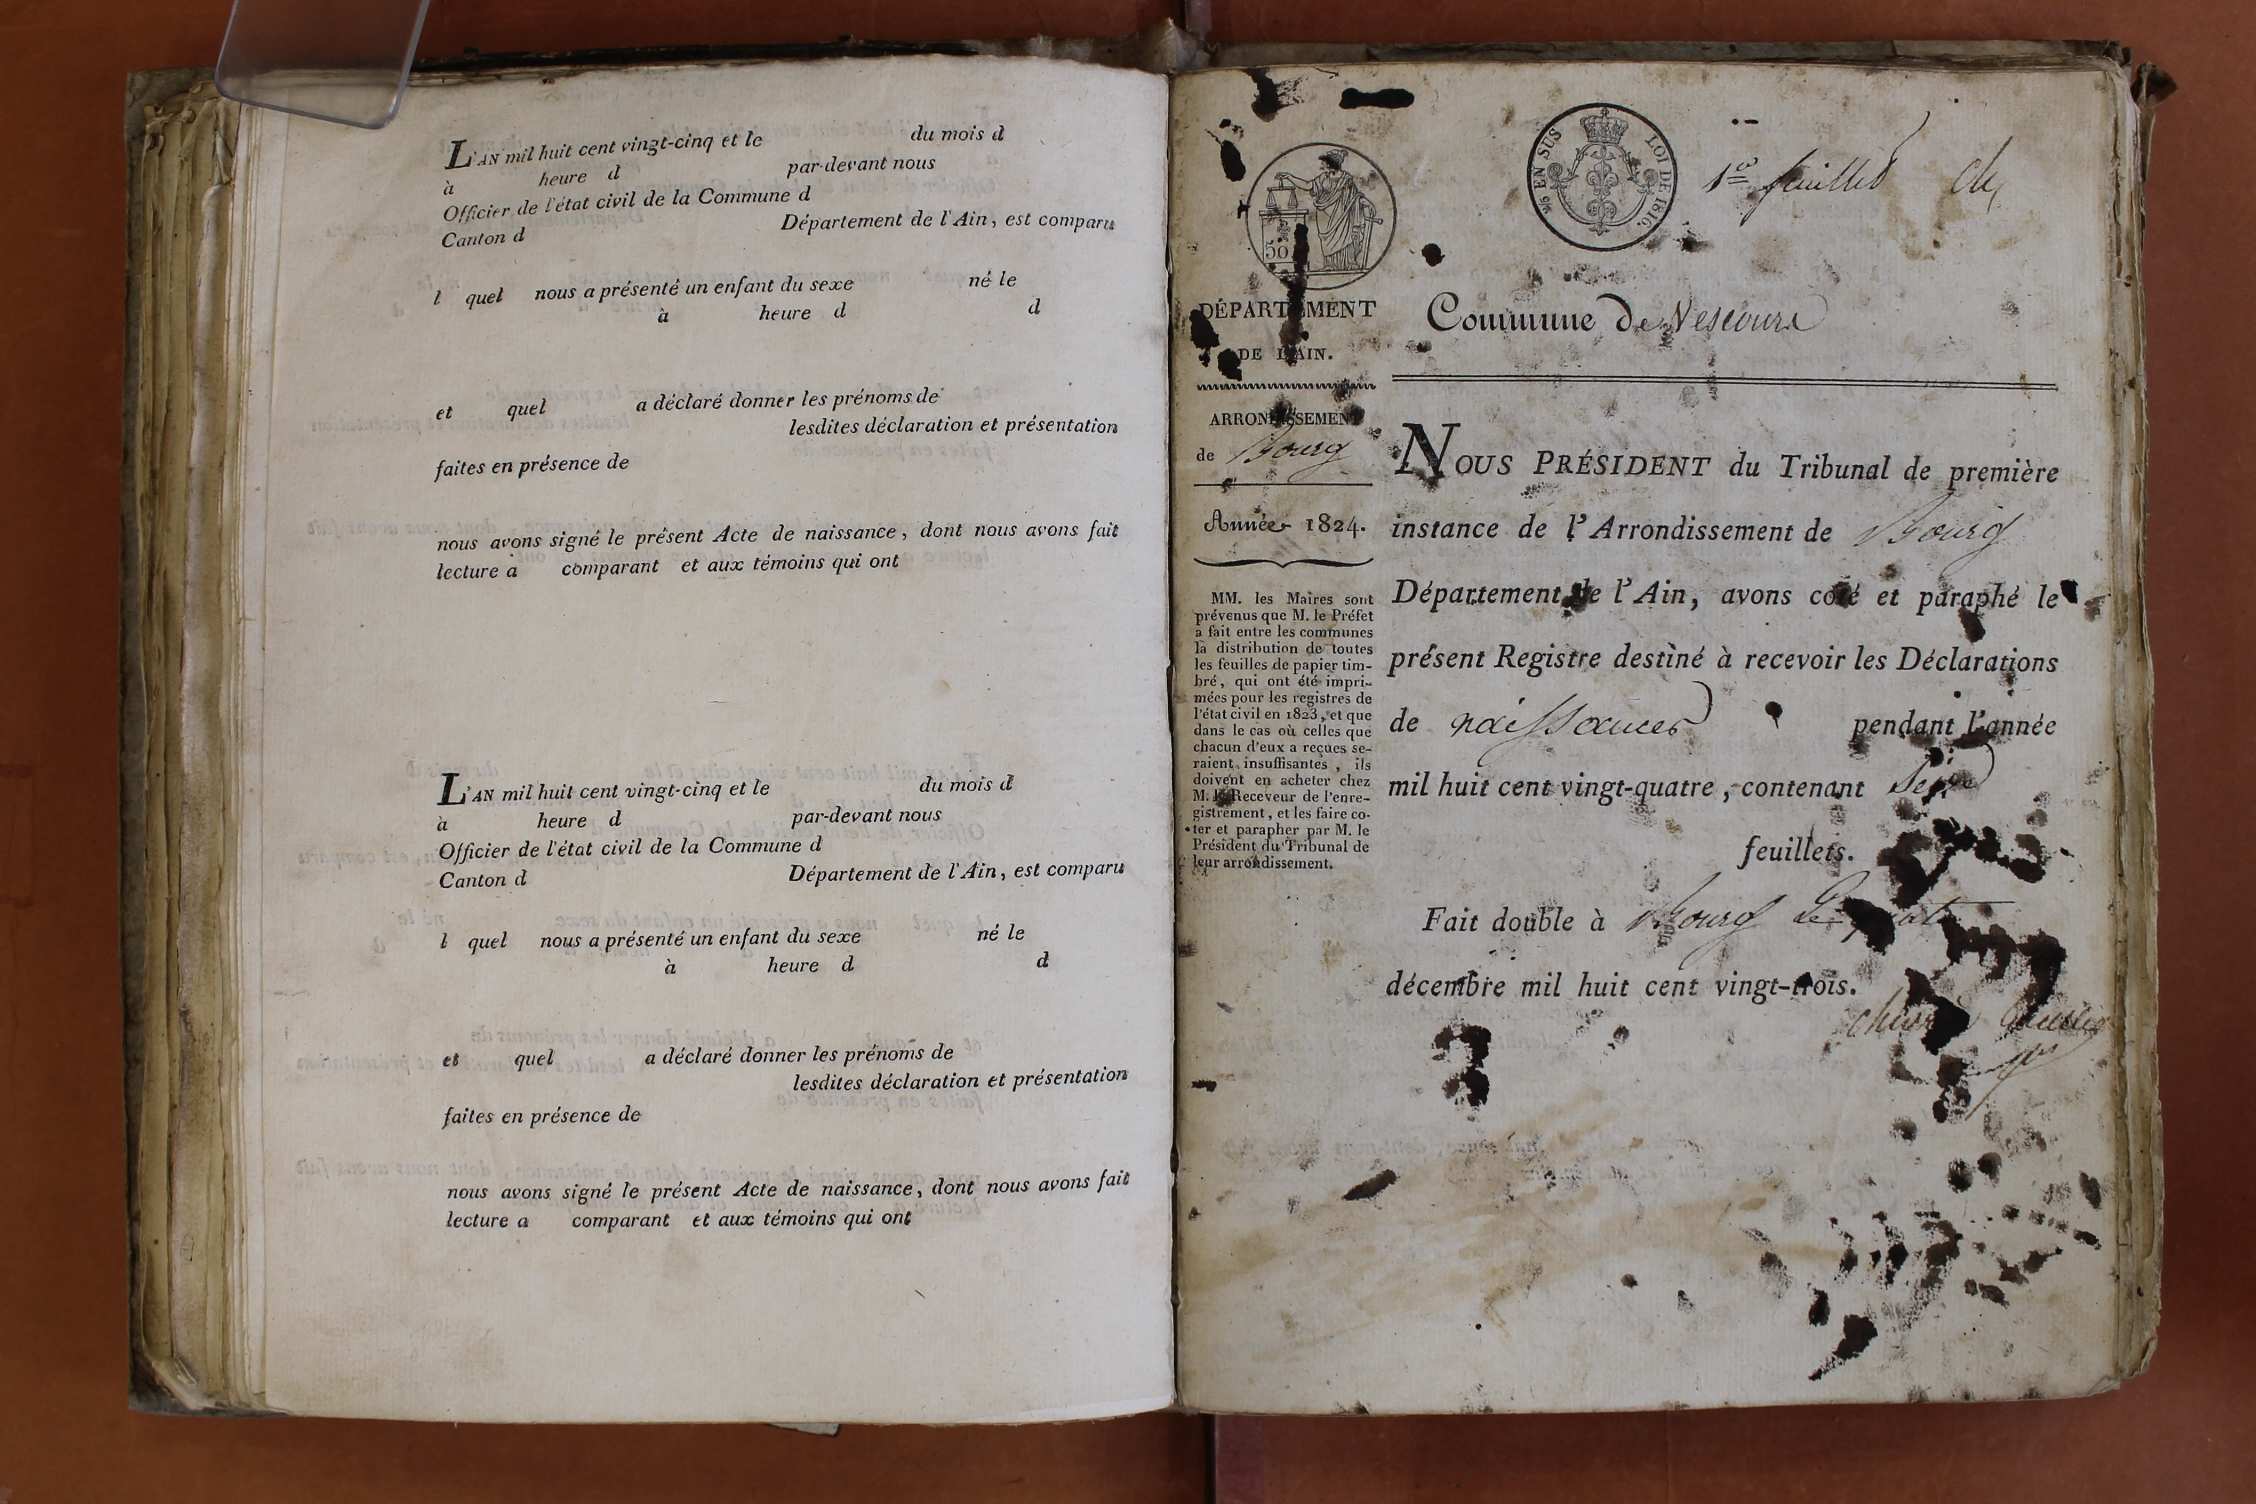 L'AN mil huit cent vingt-cinq et le du mois d
à heure d par-devant nous
Officier de l'état civil de la Commune d
Canton d Département de l'Ain, est comparu
l quel nous a présenté un enfant du sexe né le
à heure d d
et quel a déclaré donner les prénoms de
lesdites déclaration et présentation
faites en présence de
nous avons signé le présent Acte de naissance, dont nous avons fait
lecture a comparant et aux témoins qui ont
L'AN mil huit cent vingt-cinq et le du mois d
à heure d par-devant nous
Officier de l'état civil de la Commune d
Canton d Département de l'Ain, est comparu
l quel nous a présenté un enfant du sexe né le
à heure d d
et quel a déclaré donner les prénoms de
lesdites déclaration et présentation
faites en présence de
nous avons signé le présent Acte de naissance, dont nous avons fait
lecture a comparant et aux témoins qui ont
50
EN SUS LOI DE 1816.
1er feuillet
DÉPARTEMENT
DE L'AIN.
ARRONDISSEMENT
de Bourg
Année 1824.
MM. les Maires sont
prévenus que M. le Préfet
a fait entre les communes
la distribution de toutes
les feuilles de papier tim-
bré, qui ont été impri-
mées pour les registres de
l'état civil en 1823, et que
dans le cas où celles que
chacun d'eux a reçues se-
raient insuffisantes, ils
doivent en acheter chez
M. le Receveur de l'enre-
gistrement, et les faire co-
ter et parapher par M. le
Président du Tribunal de
leur arrondissement.
Commune de Vescours
NOUS PRÉSIDENT du Tribunal de première
instance de l'Arrondissement de Bourg
Département de l'Ain, avons coté et paraphé le
présent Registre destiné à recevoir les Déclarations
de naissances pendant l'année
mil huit cent vingt-quatre, contenant
feuillets.
Fait double à Bourg Le
décembre mil huit cent vingt-trois.